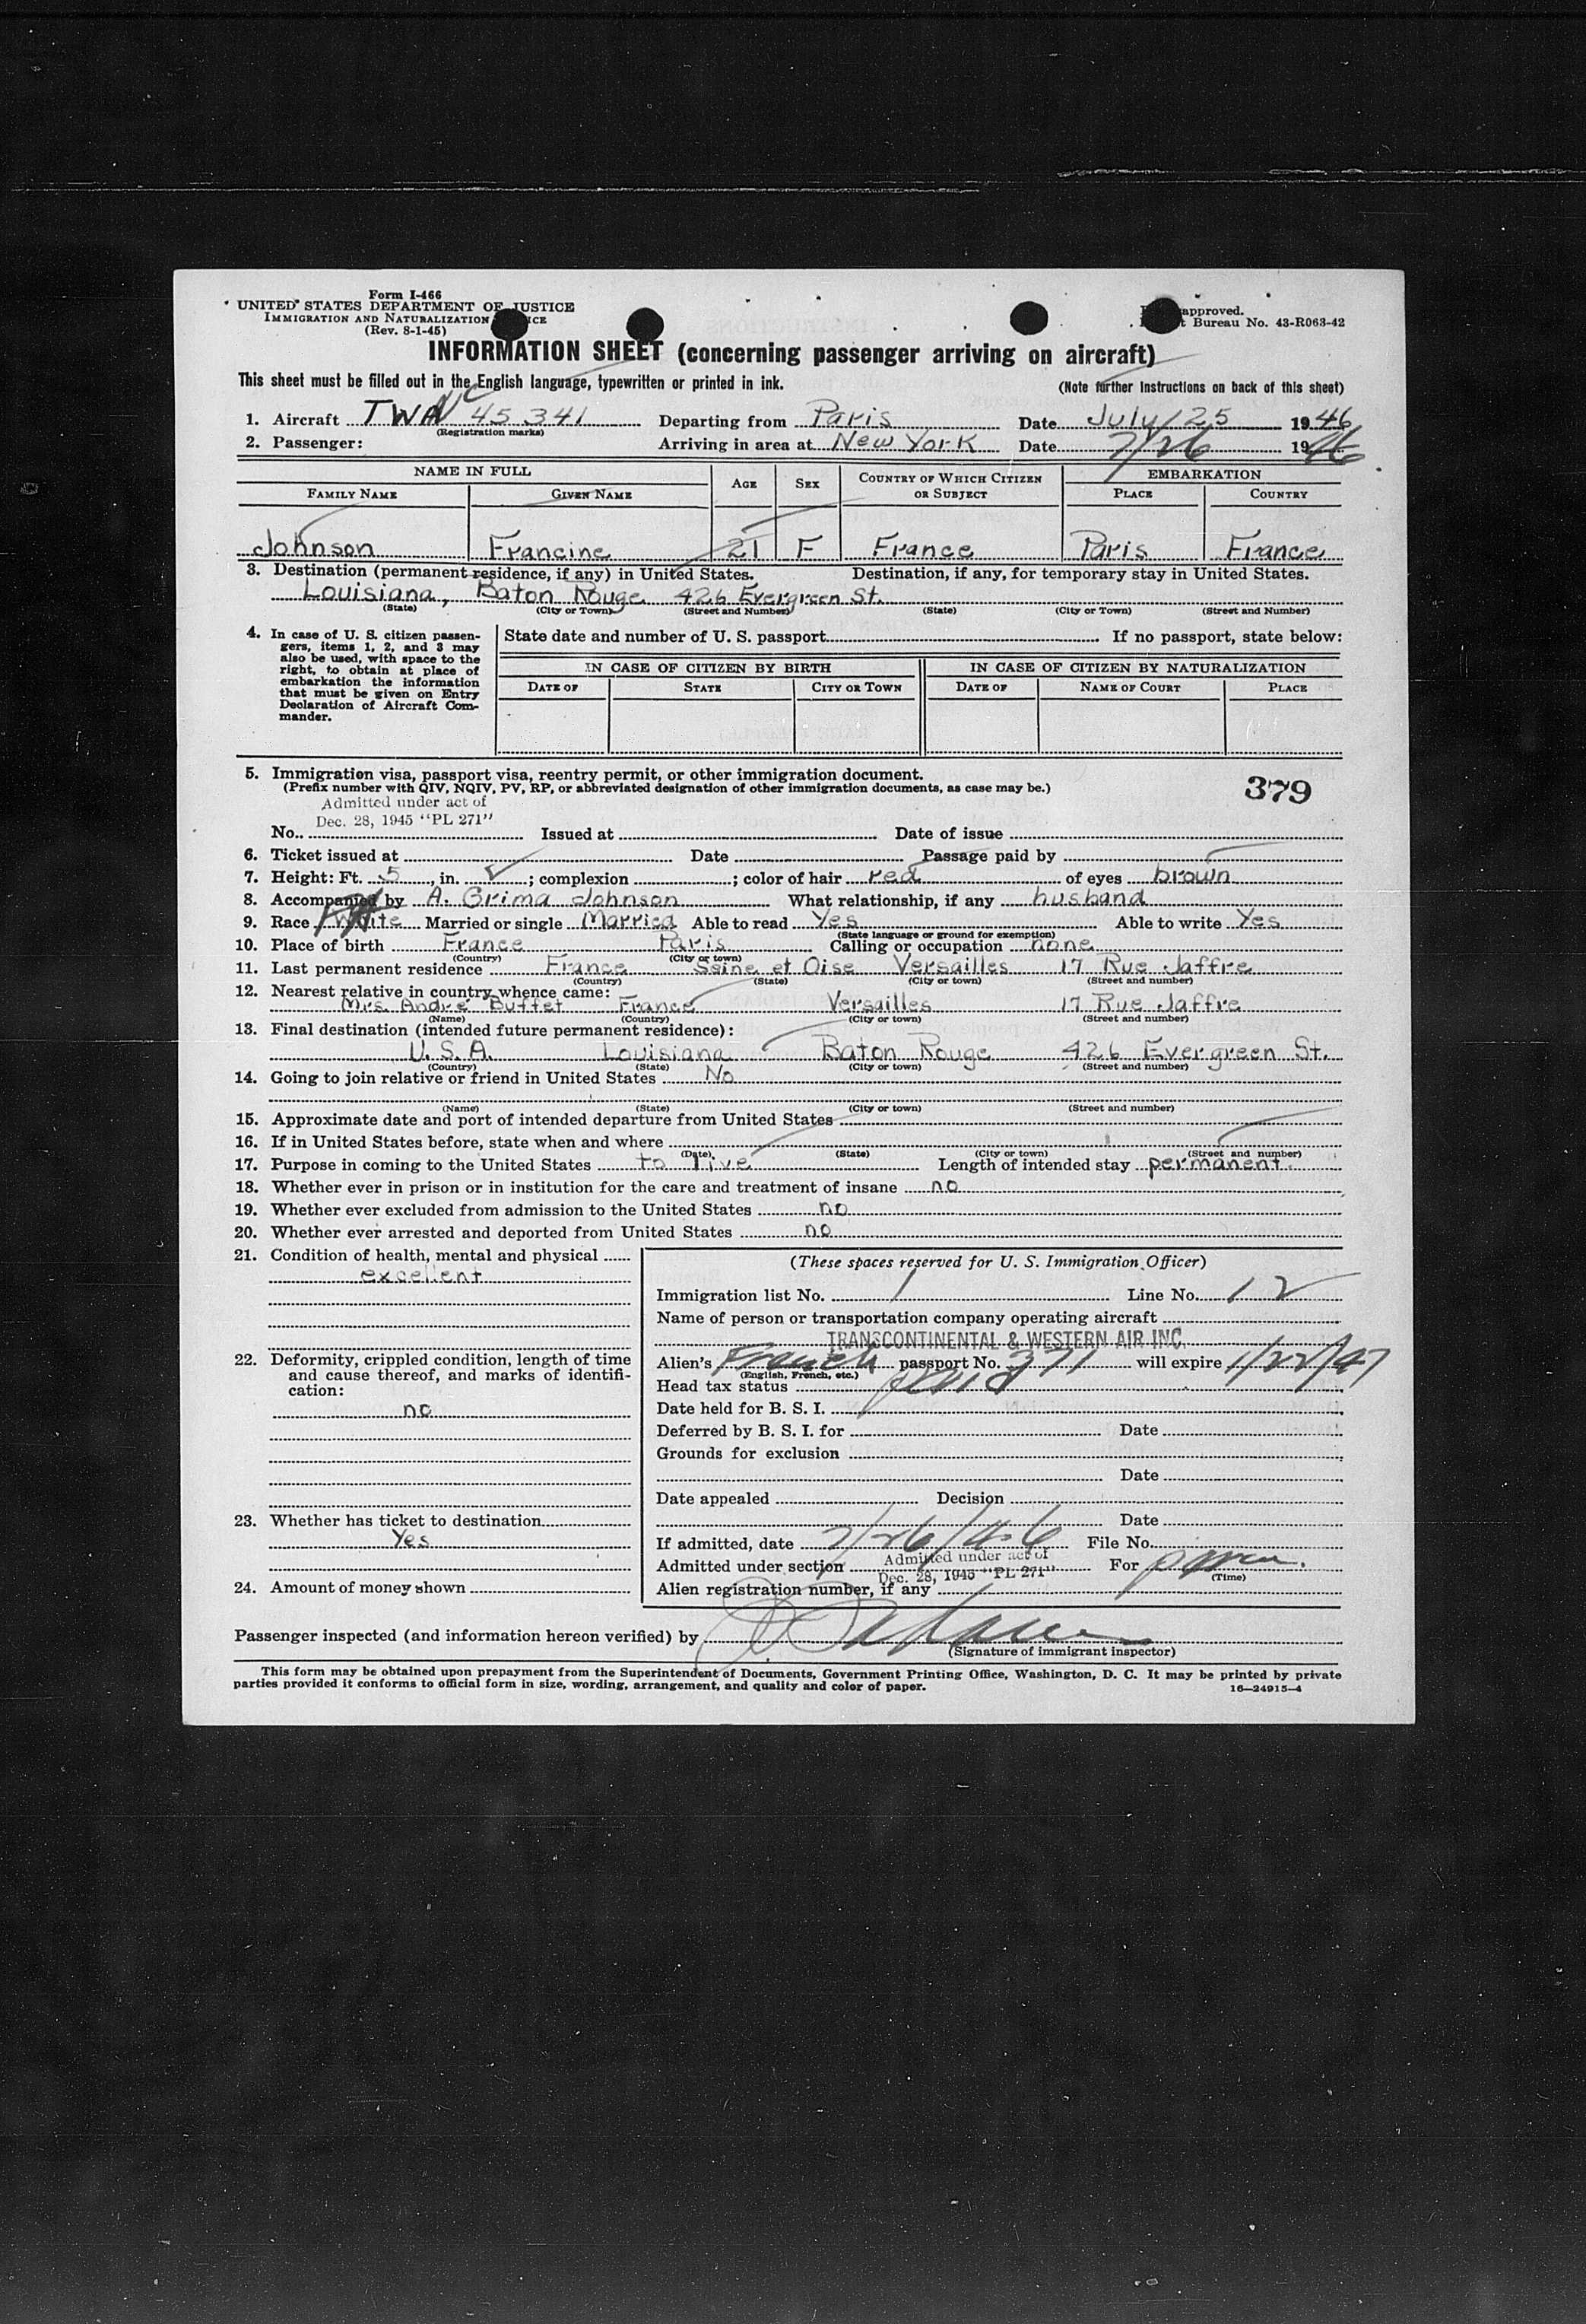 Form I-466
UNITED STATES DEPARTMENT OF JUSTICE
IMMIGRATION AND NATURALIZATION
(Rev. 8-1-45)
approved.
Bureau No. 43-R063-42
INFORMATION SHEET (concerning passenger arriving on aircraft)
This sheet must be filled out in the English language, typewritten or printed in ink.
(Note further instructions on back of this sheet)
1. Aircraft TWA NC 45341 Departing from Paris Date July 25 1946
(Registration marks)
2. Passenger: Arriving in area at New York Date 7/26 1946
NAME IN FULL AGE SEX COUNTRY OF WHICH CITIZEN OR SUBJECT EMBARKATION
FAMILY NAME GIVEN NAME PLACE COUNTRY
Johnson Francine 21 F France Paris France
3. Destination (permanent residence, if any) in United States. Destination, if any, for temporary stay in United States.
Louisiana, Baton Rouge 426 Evergreen St.
(State) (City or Town) (Street and Number) (State) (City or Town) (Street and Number)
4. In case of U. S. citizen passen-
gers, items 1, 2, and 3 may
also be used, with space to the
right, to obtain at place of
embarkation the information
that must be given on Entry
Declaration of Aircraft Com-
mander.
State date and number of U. S. passport If no passport, state below:
IN CASE OF CITIZEN BY BIRTH IN CASE OF CITIZEN BY NATURALIZATION
DATE OF STATE CITY OR TOWN DATE OF NAME OF COURT PLACE
5. Immigration visa, passport visa, reentry permit, or other immigration document.
(Prefix number with QIV, NQIV, PV, RP, or abbreviated designation of other immigration documents, as case may be.)
379
Admitted under act of
Dec. 28, 1945 "PL 271"
No. Issued at Date of issue
6. Ticket issued at Date Passage paid by
7. Height: Ft. 5, in. ; complexion ; color of hair red of eyes brown
8. Accompanied by A. Grima Johnson What relationship, if any husband
9. Race White Married or single Married Able to read Yes Able to write Yes
(State language or ground for exemption)
10. Place of birth France Paris Calling or occupation none
(Country) (City or town)
11. Last permanent residence France Seine et Oise Versailles 17 Rue Jaffre
(Country) (State) (City or town) (Street and number)
12. Nearest relative in country whence came:
Mrs. André Buffet France Versailles 17 Rue Jaffre
(Name) (Country) (City or town) (Street and number)
13. Final destination (intended future permanent residence):
U. S. A. Louisiana Baton Rouge 426 Evergreen St.
(Country) (State) (City or town) (Street and number)
14. Going to join relative or friend in United States No
(Name) (State) (City or town) (Street and number)
15. Approximate date and port of intended departure from United States
16. If in United States before, state when and where
(Date) (State) (City or town) (Street and number)
17. Purpose in coming to the United States to live Length of intended stay permanent
18. Whether ever in prison or in institution for the care and treatment of insane no
19. Whether ever excluded from admission to the United States no
20. Whether ever arrested and deported from United States no
21. Condition of health, mental and physical
excellent
22. Deformity, crippled condition, length of time
and cause thereof, and marks of identifi-
cation:
no
23. Whether has ticket to destination
Yes
24. Amount of money shown
(These spaces reserved for U. S. Immigration Officer)
Immigration list No. 1 Line No. 12
Name of person or transportation company operating aircraft
TRANSCONTINENTAL & WESTERN AIR INC
Alien's French passport No. 371 will expire 1/22/47
(English, French, etc.)
Head tax status paid
Date held for B. S. I.
Deferred by B. S. I. for Date
Grounds for exclusion
Date
Date appealed Decision
Date
If admitted, date 7/26/46 File No.
Admitted under section Admitted under act of For perm.
Dec. 28, 1945 "PL 271" (Time)
Alien registration number, if any
Passenger inspected (and information hereon verified) by
(Signature of immigrant inspector)
This form may be obtained upon prepayment from the Superintendent of Documents, Government Printing Office, Washington, D. C. It may be printed by private
parties provided it conforms to official form in size, wording, arrangement, and quality and color of paper.
16—24915-4